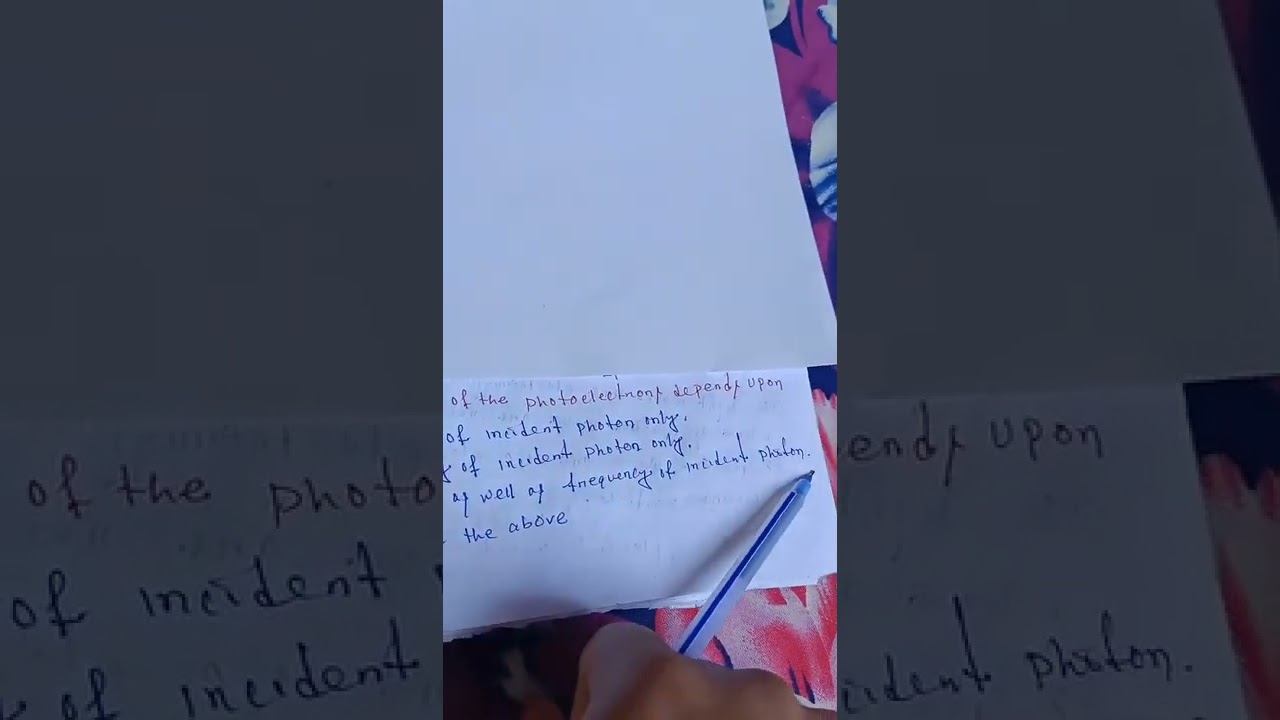 of the photoelectrons depends upon
of incident photon only.
y of incident photon only.
as well as frequency of incident photon.
the above